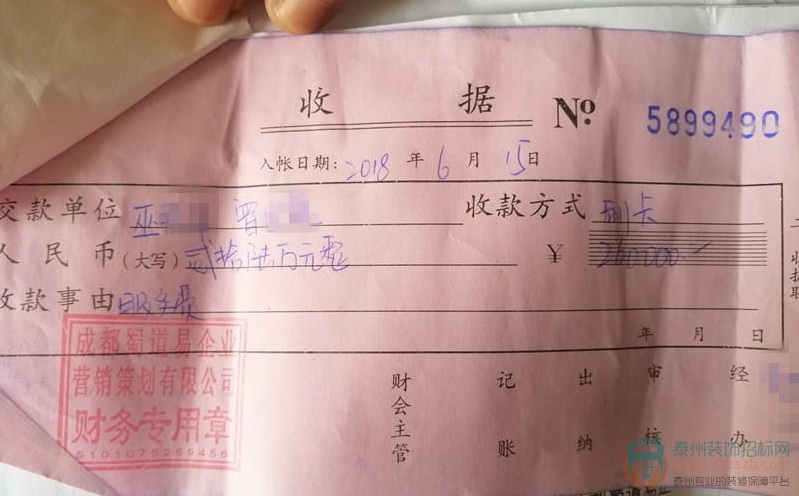 收 据 № 5899490
入帐日期: 2018 年 6 月 15 日
交款单位 巫 曾 收款方式 刷卡
人民币(大写) 贰拾陆万元整 ¥ 260000.-
收款事由 服务费
年 月 日
成都蜀道易企业
营销策划有限公司
财务专用章
5101075269456
财会主管 记账 出纳 审核 经办
泰州装饰招标网
泰州专业的装修保障平台